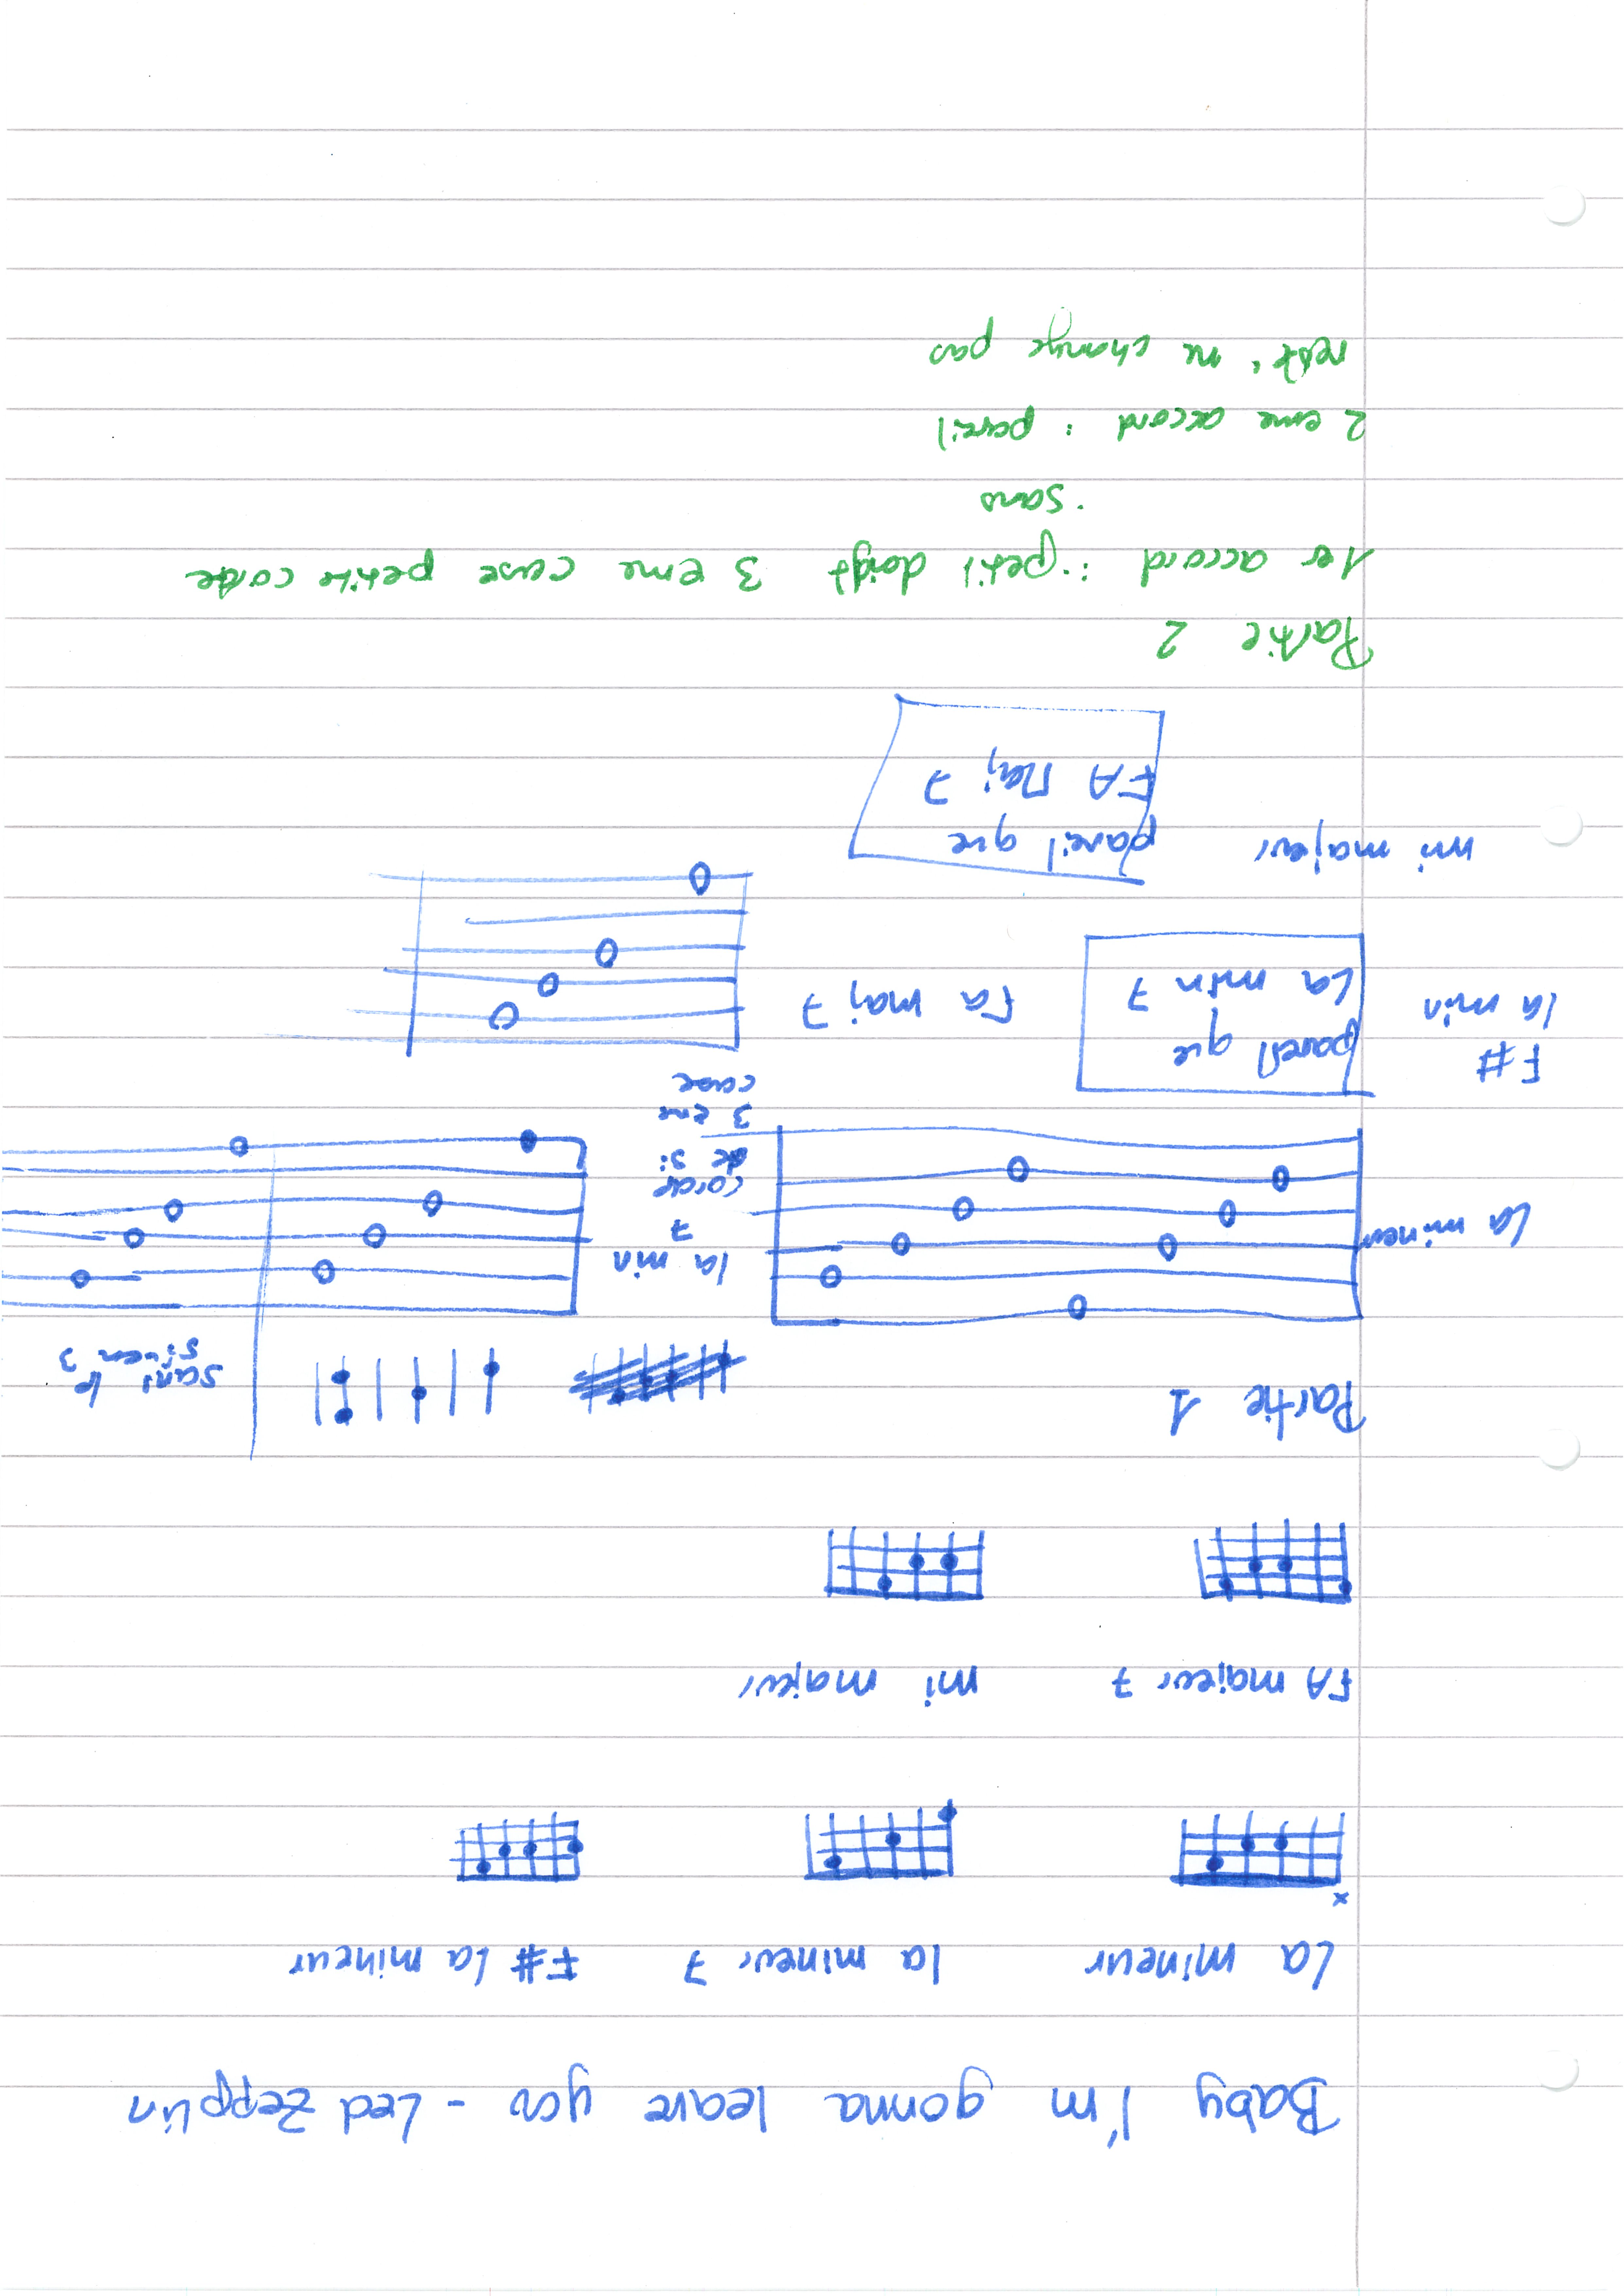 Baby I'm gonna leave you - Led Zepplin
La mineur la mineur 7 F# la mineur
x
FA majeur 7 mi majeur
Partie 1
sauf le
si en 3
La mineur
la min
7
corde
de si
3 eme
case
F#
la min
pareil que
La min 7
Fa maj 7
mi majeur
pareil que
FA Maj 7
Partie 2
1er accord : . petit doigt 3 eme case petite corde
. sans
2 eme accord : pareil
reste ne change pas